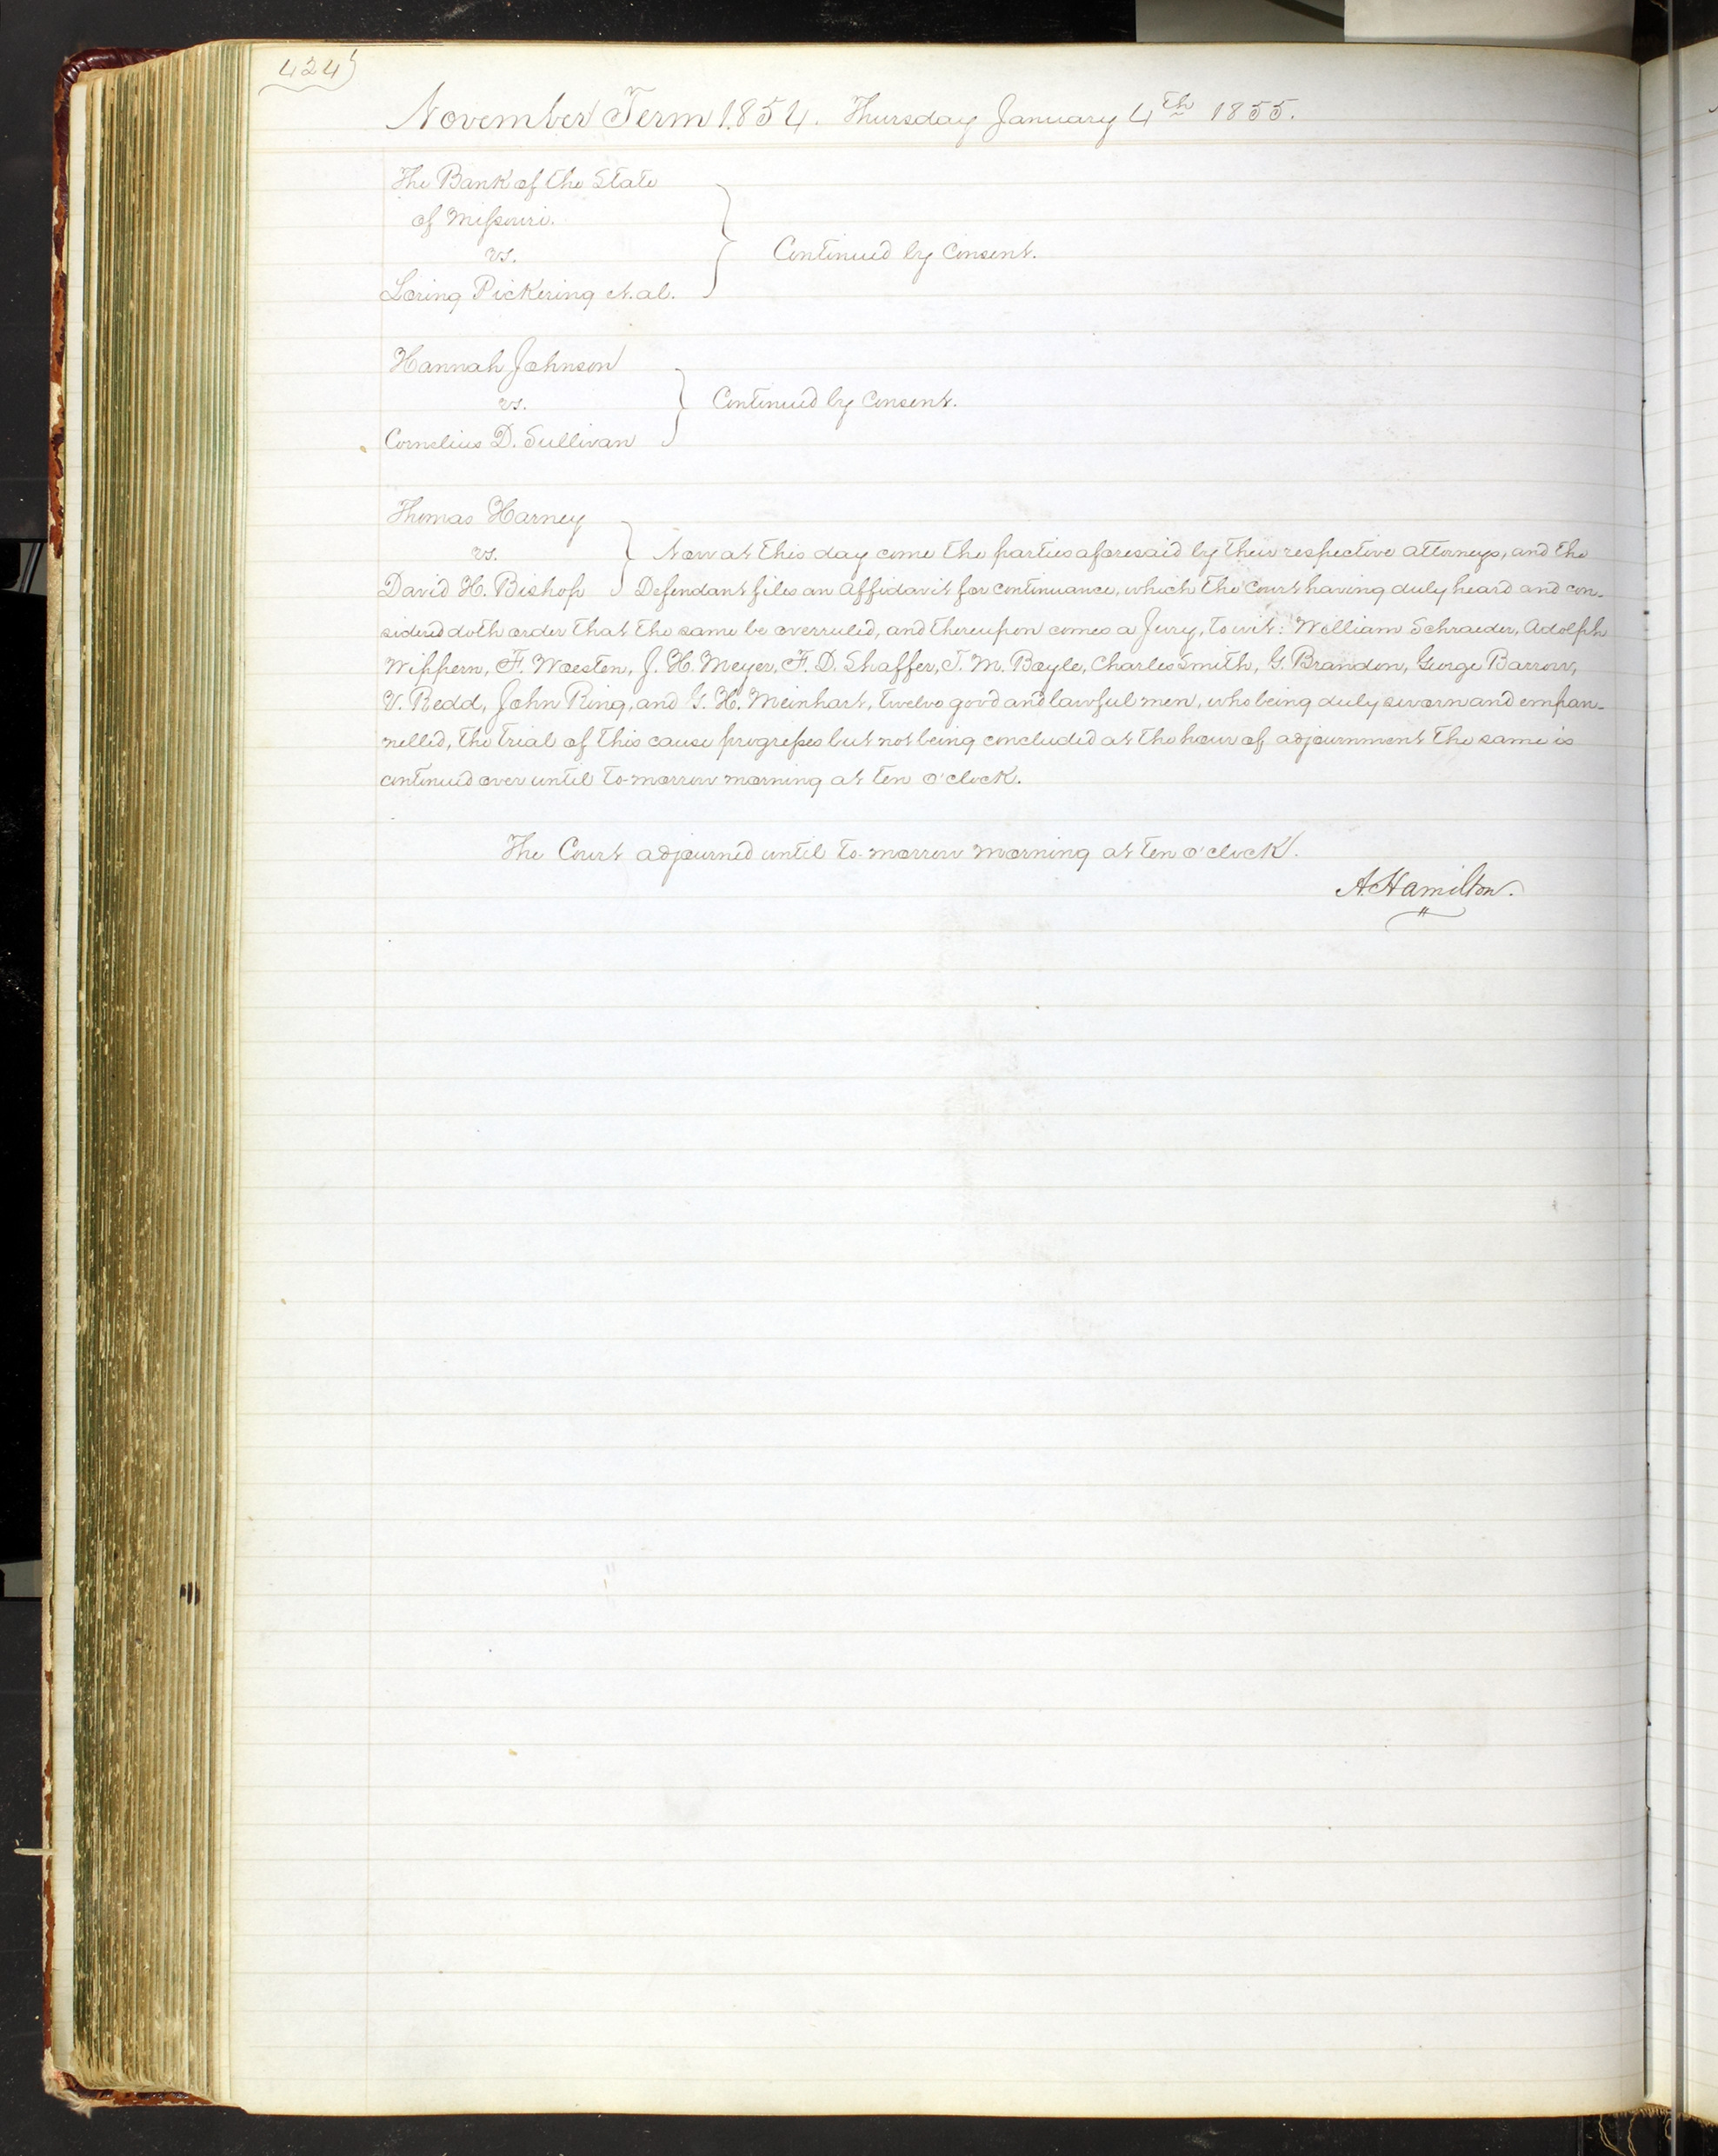 424
November Term 1854. Thursday January 4th 1855.
The Bank of the State
of Missouri.
vs.
Loring Pickering et. al.
Continued by Consent.
Hannah Johnson
vs.
Cornelius D. Sullivan
Continued by Consent.
Thomas Harney
vs. Now at this day come the parties aforesaid by their respective attorneys, and the
David H. Bishop Defendant files an affidavit for continuance, which the Court having duly heard and con-
sidered doth order that the same be overruled, and thereupon comes a Jury, to wit: William Schraeder, Adolph
Wippern, F. Woesten, J. H. Meyer, F. D. Shaffer, T. M. Boyle, Charles Smith, G. Brandon, George Barrow,
V. Redd, John Ring, and G. H. Meinhart, twelve good and lawful men, who being duly sworn and empan-
nelled, the trial of this cause progresses but not being concluded at the hour of adjournment the same is
continued over until to-morrow morning at ten o'clock.
The Court adjourned until to-morrow morning at ten o'clock.
A Hamilton.